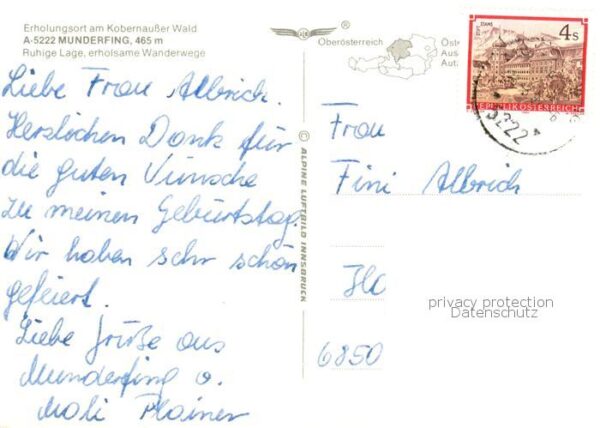 Erholungsort am Kobernaußer Wald
A-5222 MUNDERFING, 465 m
Ruhige Lage, erholsame Wanderwege
®
Oberösterreich
Öste
Aus
Auta
STAMS
4 S
REPUBLIK ÖSTERREICH
5222
Liebe Frau Albrich.
Herzlichen Dank für
die guten Wünsche
zu meinen Geburtstag.
Wir haben sehr schön
gefeiert.
Liebe Grüße aus
Munderfing v.
Mali Plainer
© ALPINE LUFTBILD INNSBRUCK
Frau
Fini Albrich
Ho
6850
privacy protection
Datenschutz